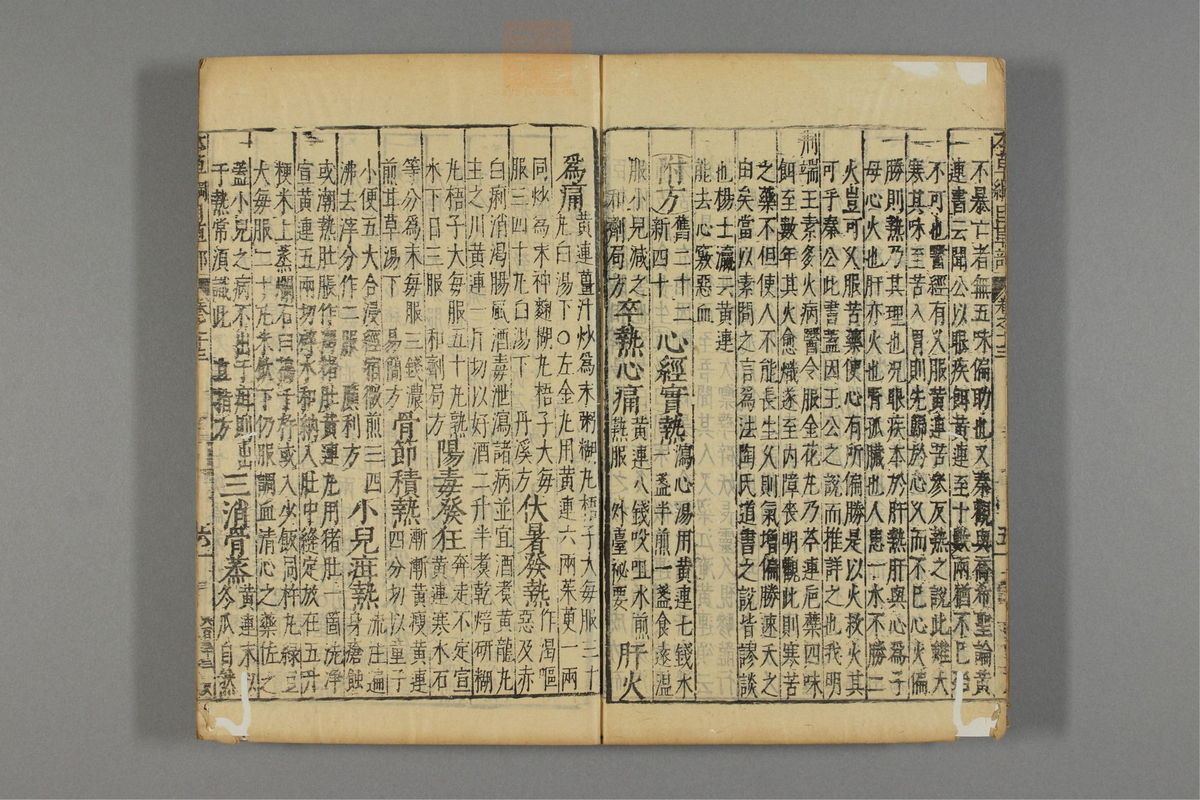 不暴亡者無五味偏助也又秦觀與喬希聖論黃
連書云聞公以眼疾餌黃連至十數兩猶不已殆
不可也醫經有久服黃連苦參反熱之說此雖大
寒其味至苦入胃則先歸於心久而不已心火偏
勝則熱乃其理也況眼疾本於肝熱肝與心爲子
母心火也肝亦火也腎孤臟也人患一水不勝二
火豈可久服苦藥使心有所偏勝是以火救火其
可乎秦公此書蓋因王公之說而推詳之也我明
荆端王素多火病醫令服金花丸乃芩連巵蘗四味
餌至數年其火愈熾遂至內障喪明觀此則寒苦
之藥不但使人不能長生久則氣增偏勝速夭之
由矣當以素問之言爲法陶氏道書之說皆謬談
也楊士瀛云黃連
能去心竅惡血
附方 舊二十二 新四十 心經實熱 瀉心湯用黃連七錢水
一盞半煎一盞食遠溫
服小兒減之
和劑局方 卒熱心痛 黃連八錢㕮咀水煎
熱服 外臺祕要 肝火
爲痛 黃連薑汁炒爲末粥糊丸梧子大每服三十
丸白湯下○左金丸用黃連六兩茱萸一兩
同炒爲末神麴糊丸梧子大每
服三四十丸白湯下 丹溪方 伏暑發熱 作渴嘔
惡及赤
白痢消渴腸風酒毒泄瀉諸病並宜酒煮黃龍丸
主之川黃連一斤切以好酒二升半煮乾焙研糊
丸梧子大每服五十丸熟
水下日三服 和劑局方 陽毒發狂 奔走不定宣
黃連寒水石
等分爲末每服三錢濃
煎甘草湯下 易簡方 骨節積熱 漸漸黃瘦黃連
四分切以童子
小便五大合浸經宿微煎三四
沸去滓分作二服 廣利方 小兒疳熱 流注遍
身瘡蝕
或潮熱肚脹作渴猪肚黃連丸用猪肚一箇洗淨
宣黃連五兩切碎水和納入肚中縫定放在五升
粳米上蒸爛石臼擣千杵或入少飯同杵丸綠豆
大每服二十丸米飲下仍服調血清心之藥佐之
蓋小兒之病不出于疳即出
于熱常須識此 直指方 三消骨蒸 黃連末以
冬瓜自然